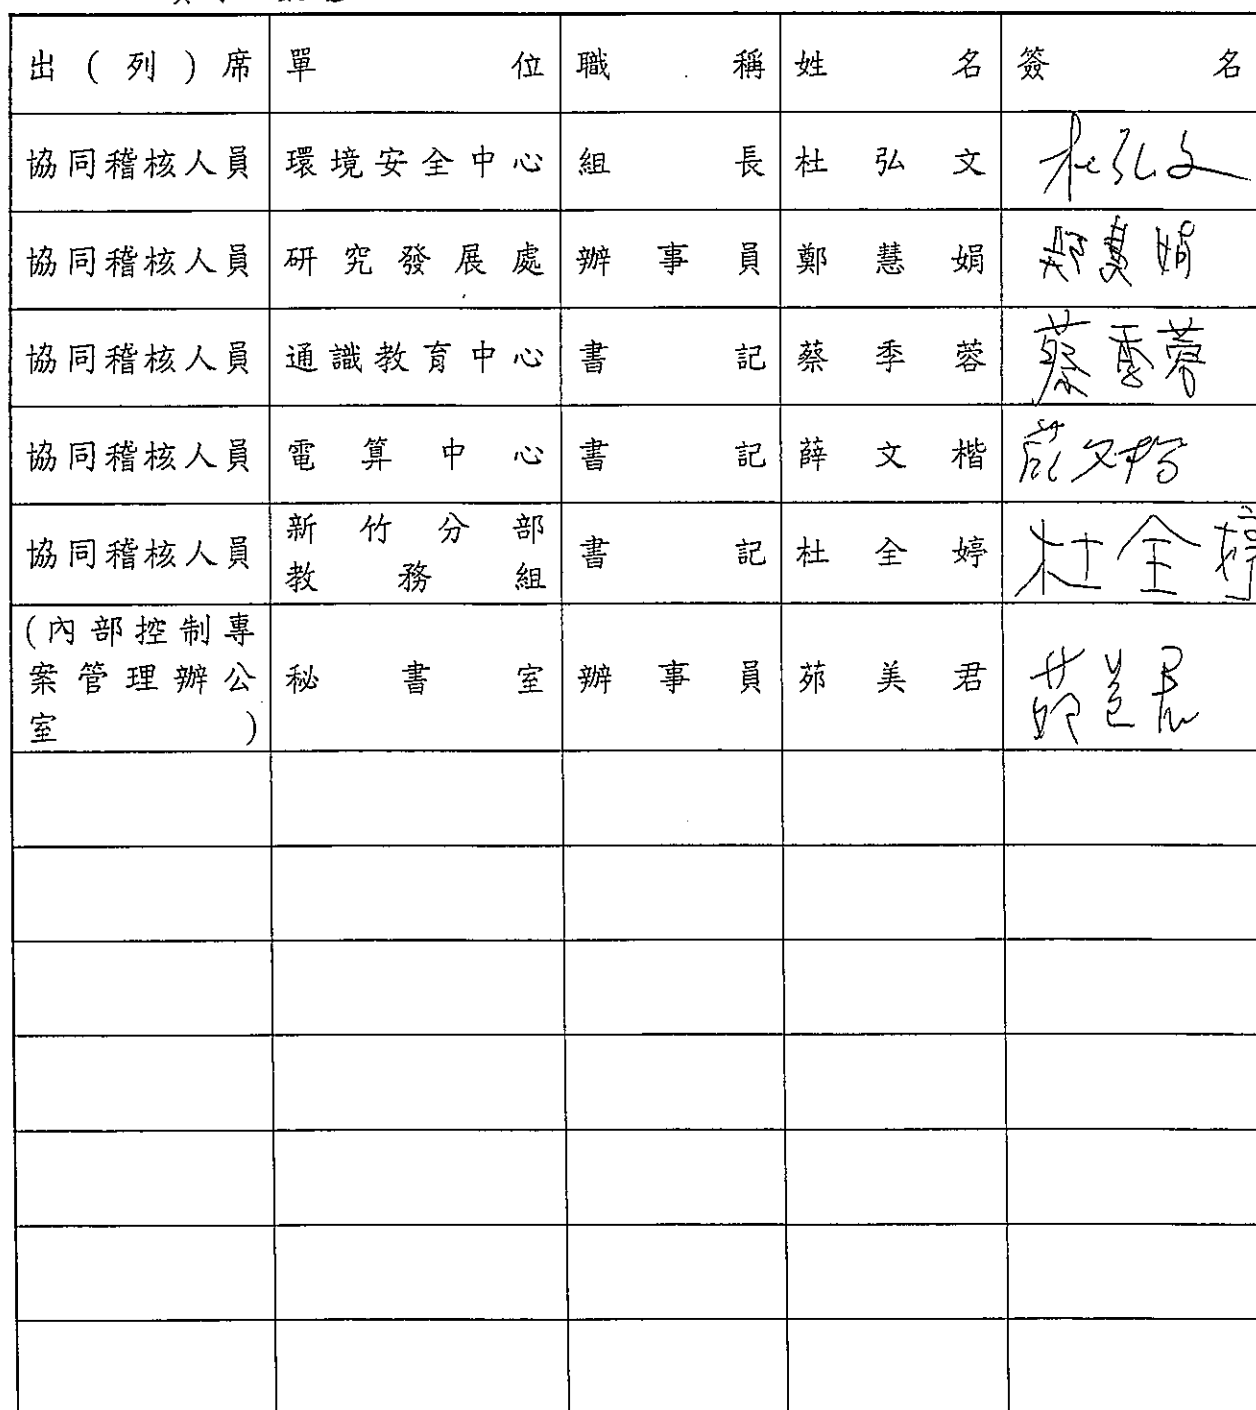 出(列)席 單位 職稱 姓名 簽名
協同稽核人員 環境安全中心 組長 杜弘文 杜弘文
協同稽核人員 研究發展處 辦事員 鄭慧娟 鄭慧娟
協同稽核人員 通識教育中心 書記 蔡季蓉 蔡季蓉
協同稽核人員 電算中心 書記 薛文楷 薛文楷
協同稽核人員 新竹分部 書記 杜全婷 杜全婷
教務組
(內部控制專
案管理辦公 秘書室 辦事員 茆美君 茆美君
室)